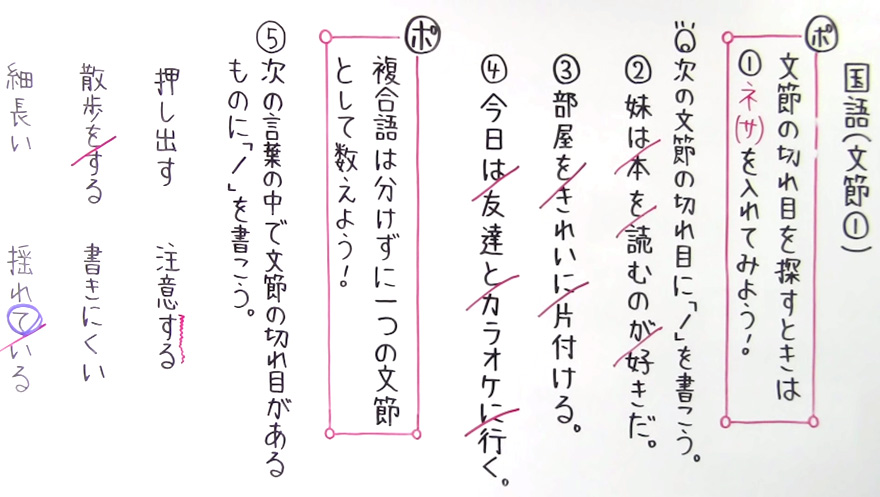 国語(文節①)
ポ
文節の切れ目を探すときは
①ネ(サ)を入れてみよう!
次の文節の切れ目に「/」を書こう。
②妹は/本を/読むのが/好きだ。
③部屋を/きれいに/片付ける。
④今日は/友達と/カラオケに/行く。
ポ
複合語は分けずに一つの文節
として数えよう!
⑤次の言葉の中で文節の切れ目がある
ものに「/」を書こう。
押し出す 注意する
散歩を/する 書きにくい
細長い 揺れて/いる